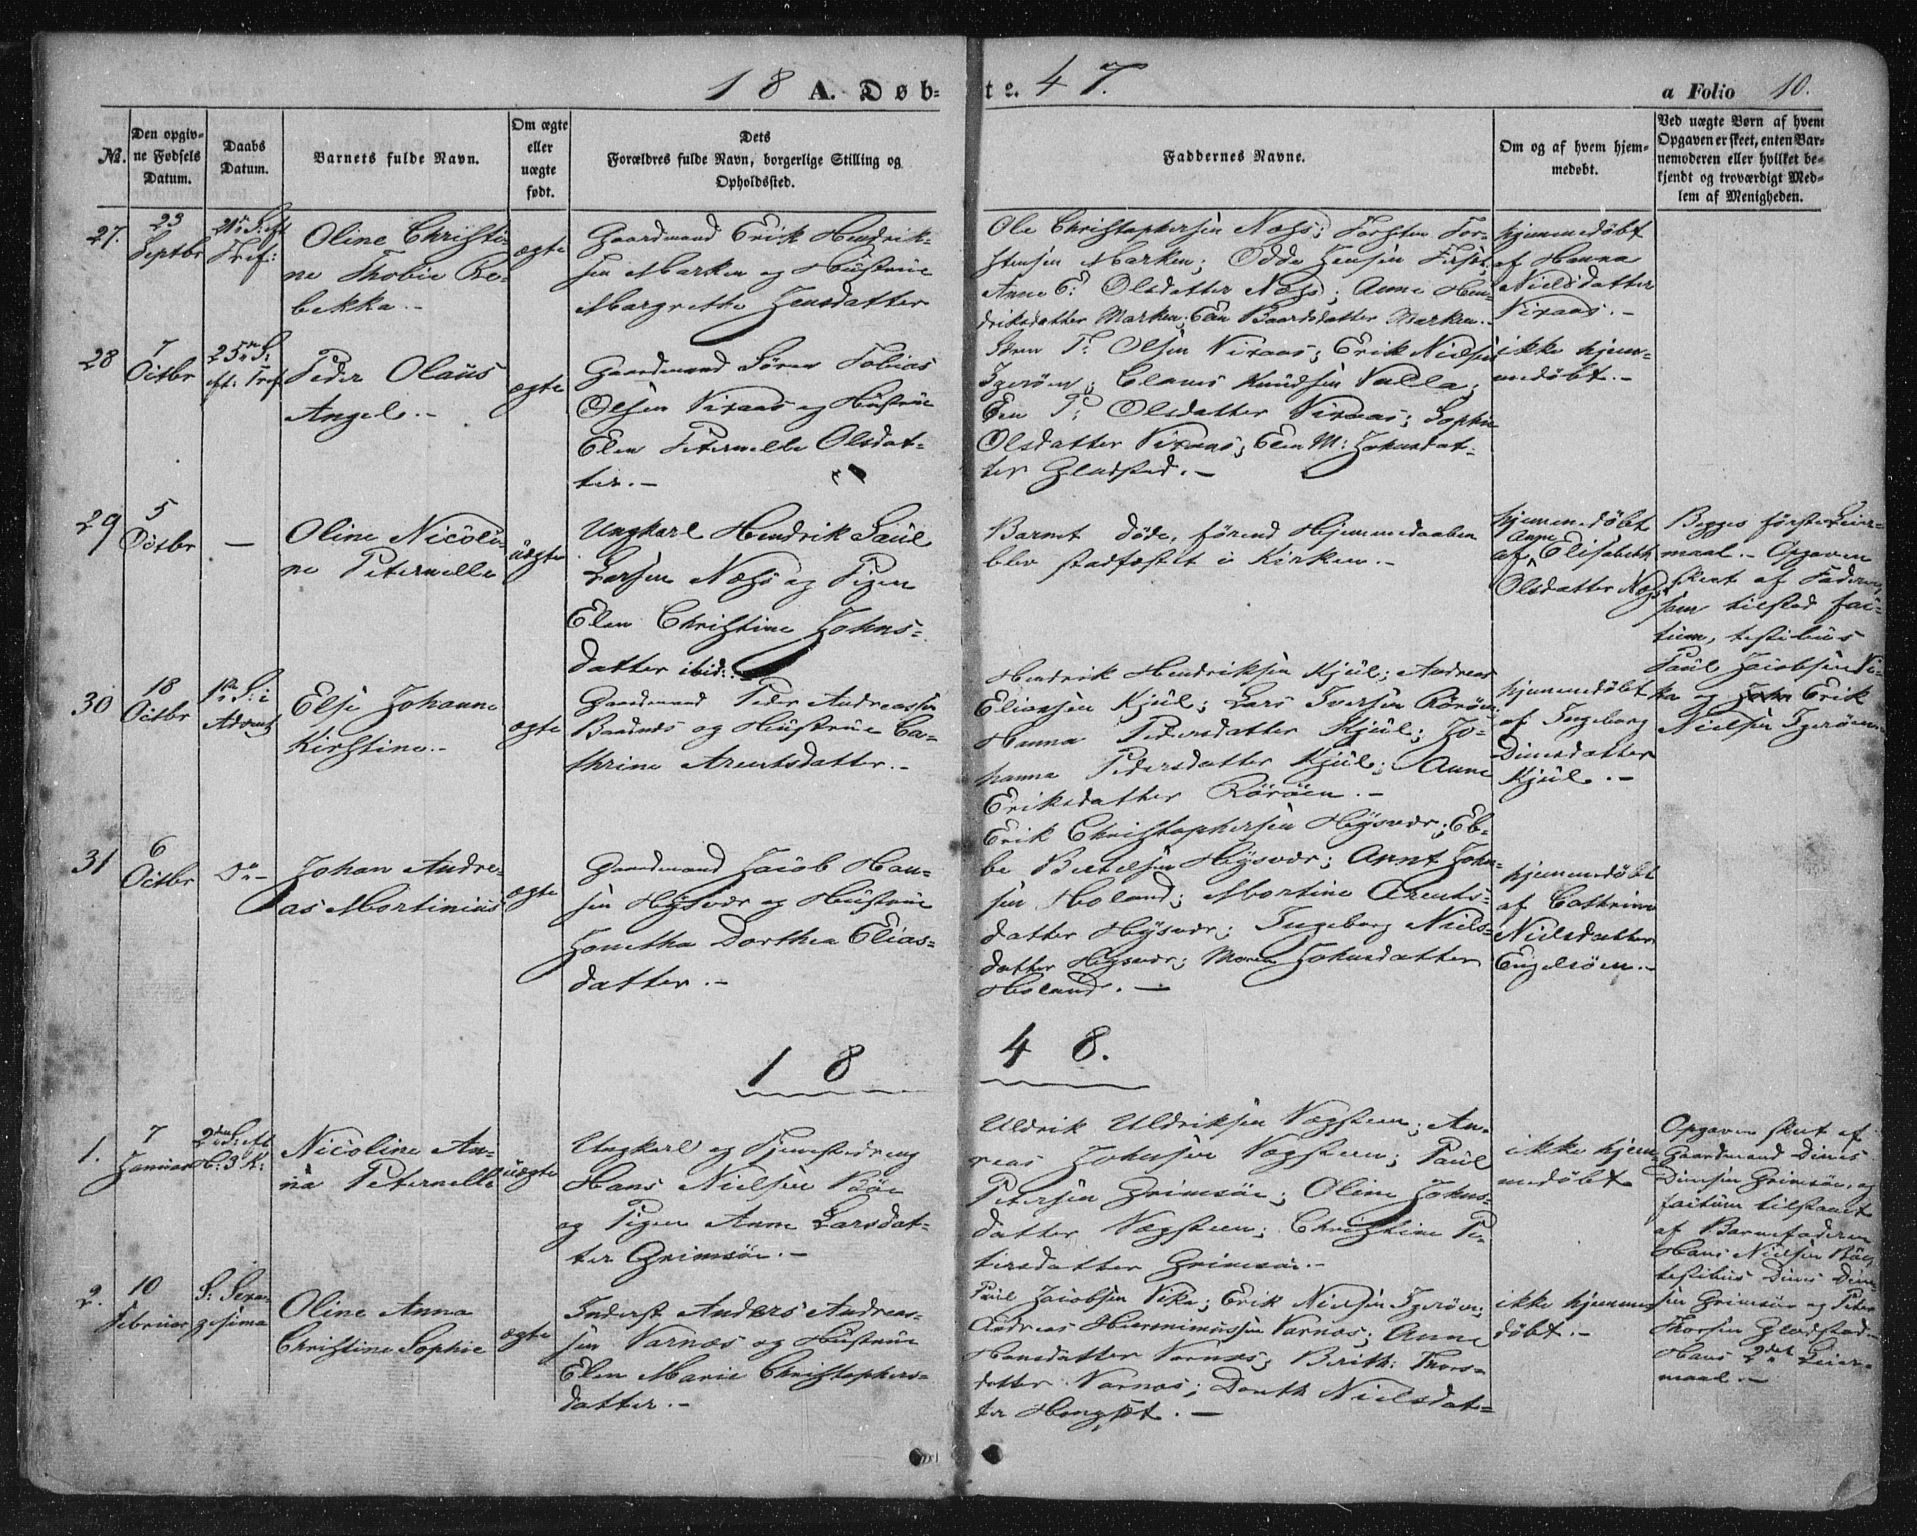 18 A. Døb- te. 47. a Folio 10.
No.
Den opgiv-
ne Fødsels
Datum.
Daabs
Datum.
Barnets fulde Navn.
Om ægte
eller
uægte
født.
Dets
Forældres fulde Navn, borgerlige Stilling og
Opholdssted.
Faddernes Navne.
Om og af hvem hjem-
medøbt.
Ved uægte Børn af hvem
Opgaven er skeet, enten Bar-
nemoderen eller hvilket be-
kjendt og troværdigt Med-
lem af Menigheden.
27.
23
Septbr
21n S: eft
Trif:
Oline Christi-
ne Thobie Re-
bekka.-
ægte
Gaardmand Erik Hendrik-
sen Marken og Hustrue
Margrethe Jensdatter
Ole Christophersen Næss; Torsten Tor-
stensen Marken; Odde Jensen
Anne E: Olsdatter Næss; Anne Hen-
driksdatter Marken; Elen Baardsdatter Marken.-
hjemmedøbt
af Hanna
Nielsdatter
Vixaas.-
28
7
Octbr
25n S:
eft: Tref
Peder Olaus
Angel.-
ægte
Gaardmand Søren Tobias
Olsen Vixaas og Hustrue
Elen Peternelle Olsdat-
ter.-
T: Olsen Vixaas; Erik Nielsen
Igerøen; Claus Knudsen Valla;
P: Olsdatter Vixaas; Sophie
Olsdatter Vixaas; Elen M: Johnsdat-
ter Gladstad.-
ikke hjem-
medøbt.-
29
5
Octbr
-
Oline Nicoli-
ne Peternelle
uægte
Ungkarl Hendrik Paul
Larsen Næss og Pigen
Elen Christine Johns-
datter ibid:
Barnet døde, førend Hjemmedaaben
blev stadfæstet i Kirken.-
hjemmedøbt
Anne
af Elisabeth
Olsdatter Næss
Begges første Leier-
maal.- Opgaven
skeet af Faderen,
som tilstod fac-
tum, testibus
Paul Jacobsen Vi-
ka og Erik
Nielsen Igerøen.
30
18
Octbr
1ste S: i
Advent
Else Johanne
Kirstine.-
ægte
Gaardmand Peder Andreassen
Baadnes og Hustrue Ca-
thrine Arentsdatter.-
Hendrik Hendriksen Kjul; Andreas
Eliassen Kjul; Lars Iversen Rørøen;
Hanna Pedersdatter Kjul; Jo-
hanna Pedersdatter Kjul; Anne
Eriksdatter Rørøen.-
hjemmedøbt
af Ingeborg
Dinesdatter
Kjul.-
31
6
Octbr
Do-
Johan Andre-
as Mortinius
ægte
Gaardmand Jacob Han-
sen Hysvær og Hustrue
Jonetha Dorthea Elias-
datter.-
Erik Christophersen Hysvær; Eb-
be Bertelsen Hysvær; Arnt John-
sen Holand; Mortine Arents-
datter Hysvær; Ingeborg Niels-
datter Hysvær; Maren Johnsdatter
Holand.-
hjemmedøbt
af Cathrine
Nielsdatter
Engelsøen.-
18 48.
1.
7
Januar
2den S: eft
H: 3 K:
Nicoline An-
na Peternelle
uægte
Ungkarl og Tjenestedreng
Hans Nielsen Bøe
og Pigen Anne Larsdat-
ter Grimsøe.-
Uldrik Uldriksen Vægsteen; An-
reas Johnsen Vægsteen; Paul
Petersen Grimsøe; Oline Johns-
datter Vægsteen; Christine Pe-
tersdatter Grimsøe.-
ikke hjem-
medøbt
Opgaven skeet af
Gaardmand Dines
Dinesen Grimsøe, og
factum tilstaaet
af Barnefaderen
Hans Nielsen Bøe,
testibus Dines Dine-
sen Grimsøe og Peter
Thorsen Gladstad.
Hans 2det Leier-
maal.-
2.
10
Februar
S: Sexa-
gesima
Oline Anna
Christine Sophie
ægte
Inderst Anders Andreas-
sen Varnæs og Hustrue
Elen Marie Christophers-
datter.-
Paul Jacobsen Vika; Erik Nielsen Igerøen;
Andreas Hieronimussen Varnæs; Anne
Hansdatter Varnæs; Berith: Thors-
datter Varnæs; Dorth Nielsdat-
ter Hongset.-
ikke hjemme-
døbt.-